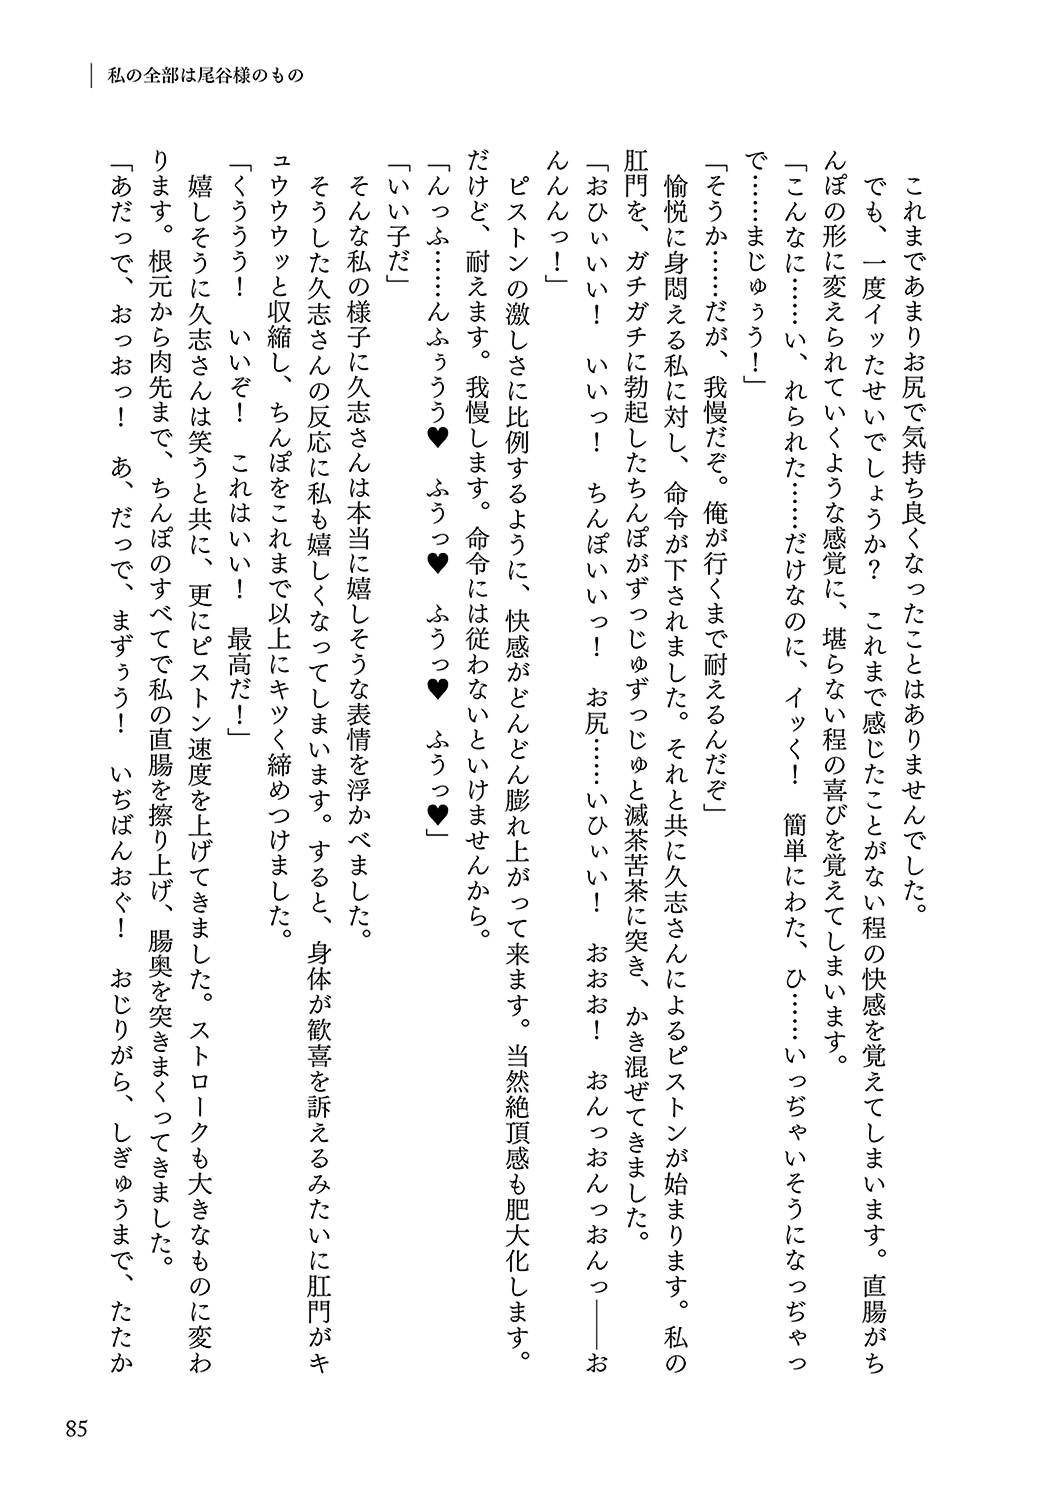 私の全部は尾谷様のもの
これまであまりお尻で気持ち良くなったことはありませんでした。
でも、一度イッたせいでしょうか？　これまで感じたことがない程の快感を覚えてしまいます。直腸がち
んぽの形に変えられていくような感覚に、堪らない程の喜びを覚えてしまいます。
「こんなに……い、れられた……だけなのに、イッく！　簡単にわた、ひ……いっぢゃいそうになっぢゃっ
で……まじゅぅう！」
「そうか……だが、我慢だぞ。俺が行くまで耐えるんだぞ」
愉悦に身悶える私に対し、命令が下されました。それと共に久志さんによるピストンが始まります。私の
肛門を、ガチガチに勃起したちんぽがずっじゅずっじゅと滅茶苦茶に突き、かき混ぜてきました。
「おひぃいい！　いいっ！　ちんぽいいっ！　お尻……いひぃい！　おおお！　おんっおんっおんっ――お
んんんっ！」
ピストンの激しさに比例するように、快感がどんどん膨れ上がって来ます。当然絶頂感も肥大化します。
だけど、耐えます。我慢します。命令には従わないといけませんから。
「んっふ……んふぅうう♥　ふうっ♥　ふうっ♥　ふうっ♥」
「いい子だ」
そんな私の様子に久志さんは本当に嬉しそうな表情を浮かべました。
そうした久志さんの反応に私も嬉しくなってしまいます。すると、身体が歓喜を訴えるみたいに肛門がキ
ュウウウッと収縮し、ちんぽをこれまで以上にキツく締めつけました。
「くううう！　いいぞ！　これはいい！　最高だ！」
嬉しそうに久志さんは笑うと共に、更にピストン速度を上げてきました。ストロークも大きなものに変わ
ります。根元から肉先まで、ちんぽのすべてで私の直腸を擦り上げ、腸奥を突きまくってきました。
「あだっで、おっおっ！　あ、だっで、まずぅう！　いぢばんおぐ！　おじりがら、しぎゅうまで、たたか
85